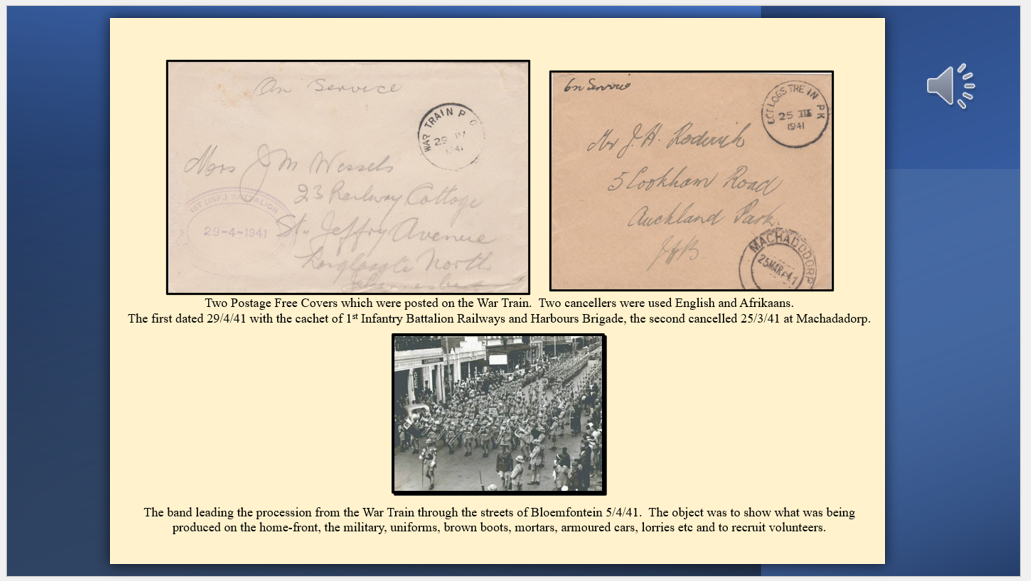 On Service
WAR TRAIN P O
29 IV
1941
Mrs J M Wessels
23 Railway Cottage
St. Jeffry Avenue
North
1ST INF. BATTALION
29-4-1941
On Service
25 III
1941
Mr J.H. Roderick
5 Cookham Road
Auckland Park
JHB
MACHADODORP
25 MAR 41
Two Postage Free Covers which were posted on the War Train.  Two cancellers were used English and Afrikaans.
The first dated 29/4/41 with the cachet of 1st Infantry Battalion Railways and Harbours Brigade, the second cancelled 25/3/41 at Machadadorp.
The band leading the procession from the War Train through the streets of Bloemfontein 5/4/41.  The object was to show what was being
produced on the home-front, the military, uniforms, brown boots, mortars, armoured cars, lorries etc and to recruit volunteers.